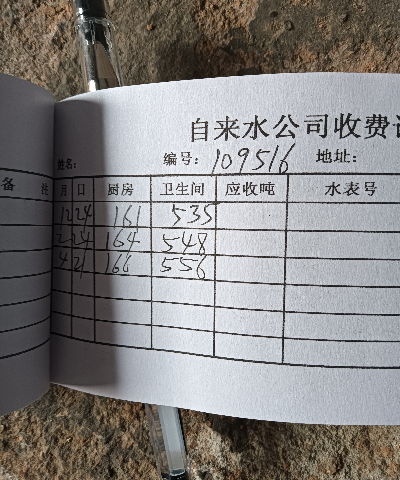 自来水公司收费
姓名: 编号: 109516 地址:
备
月 日 厨房 卫生间 应收吨 水表号
12 24 161 535
2 24 164 548
4 21 166 556